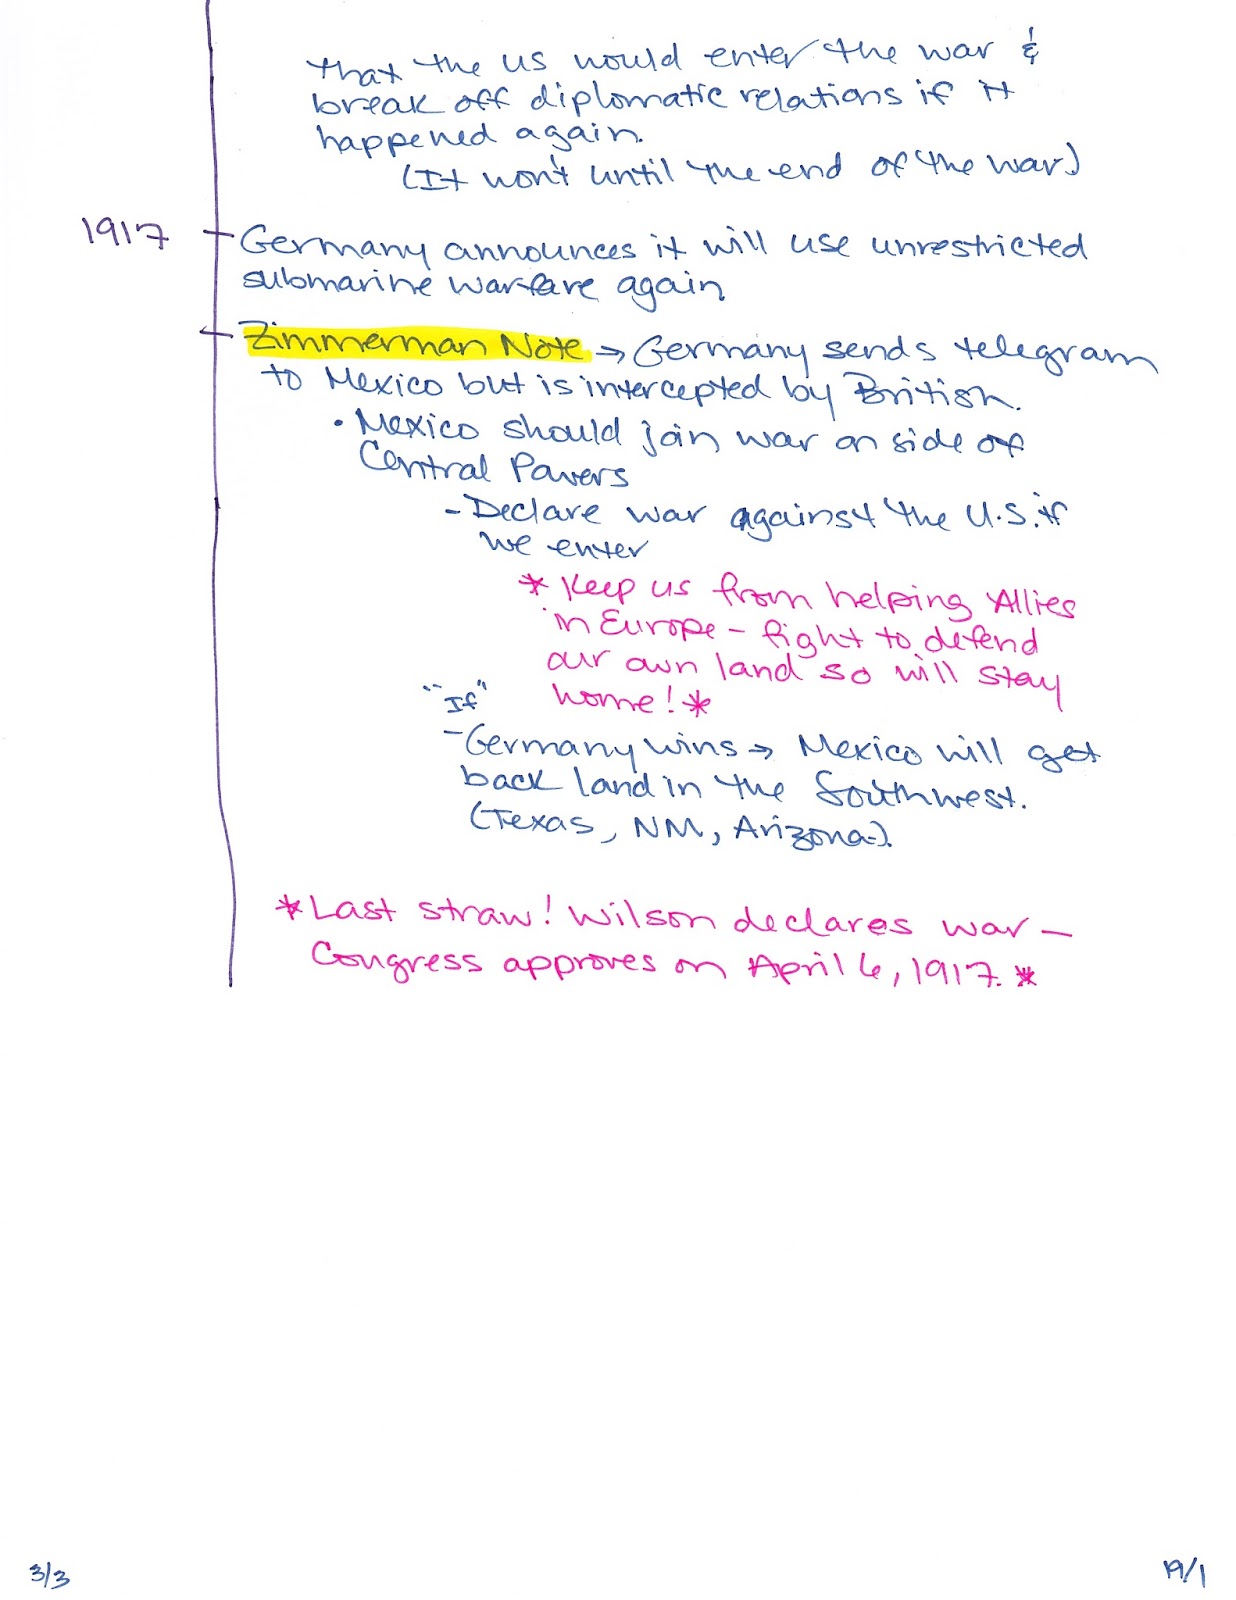 that the US would enter the war &
break off diplomatic relations if it
happened again.
(It won't until the end of the war)
1917 Germany announces it will use unrestricted
submarine warfare again
Zimmerman Note → Germany sends telegram
to Mexico but is intercepted by British.
• Mexico should join war on side of
Central Powers
- Declare war against the U.S. if
we enter
* Keep us from helping Allies
in Europe - fight to defend
our own land so will stay
home! *
"If"
- Germany wins → Mexico will get
back land in the Southwest.
(Texas, NM, Arizona).
* Last straw! Wilson declares war –
Congress approves on April 6, 1917. *
3/3
19/1